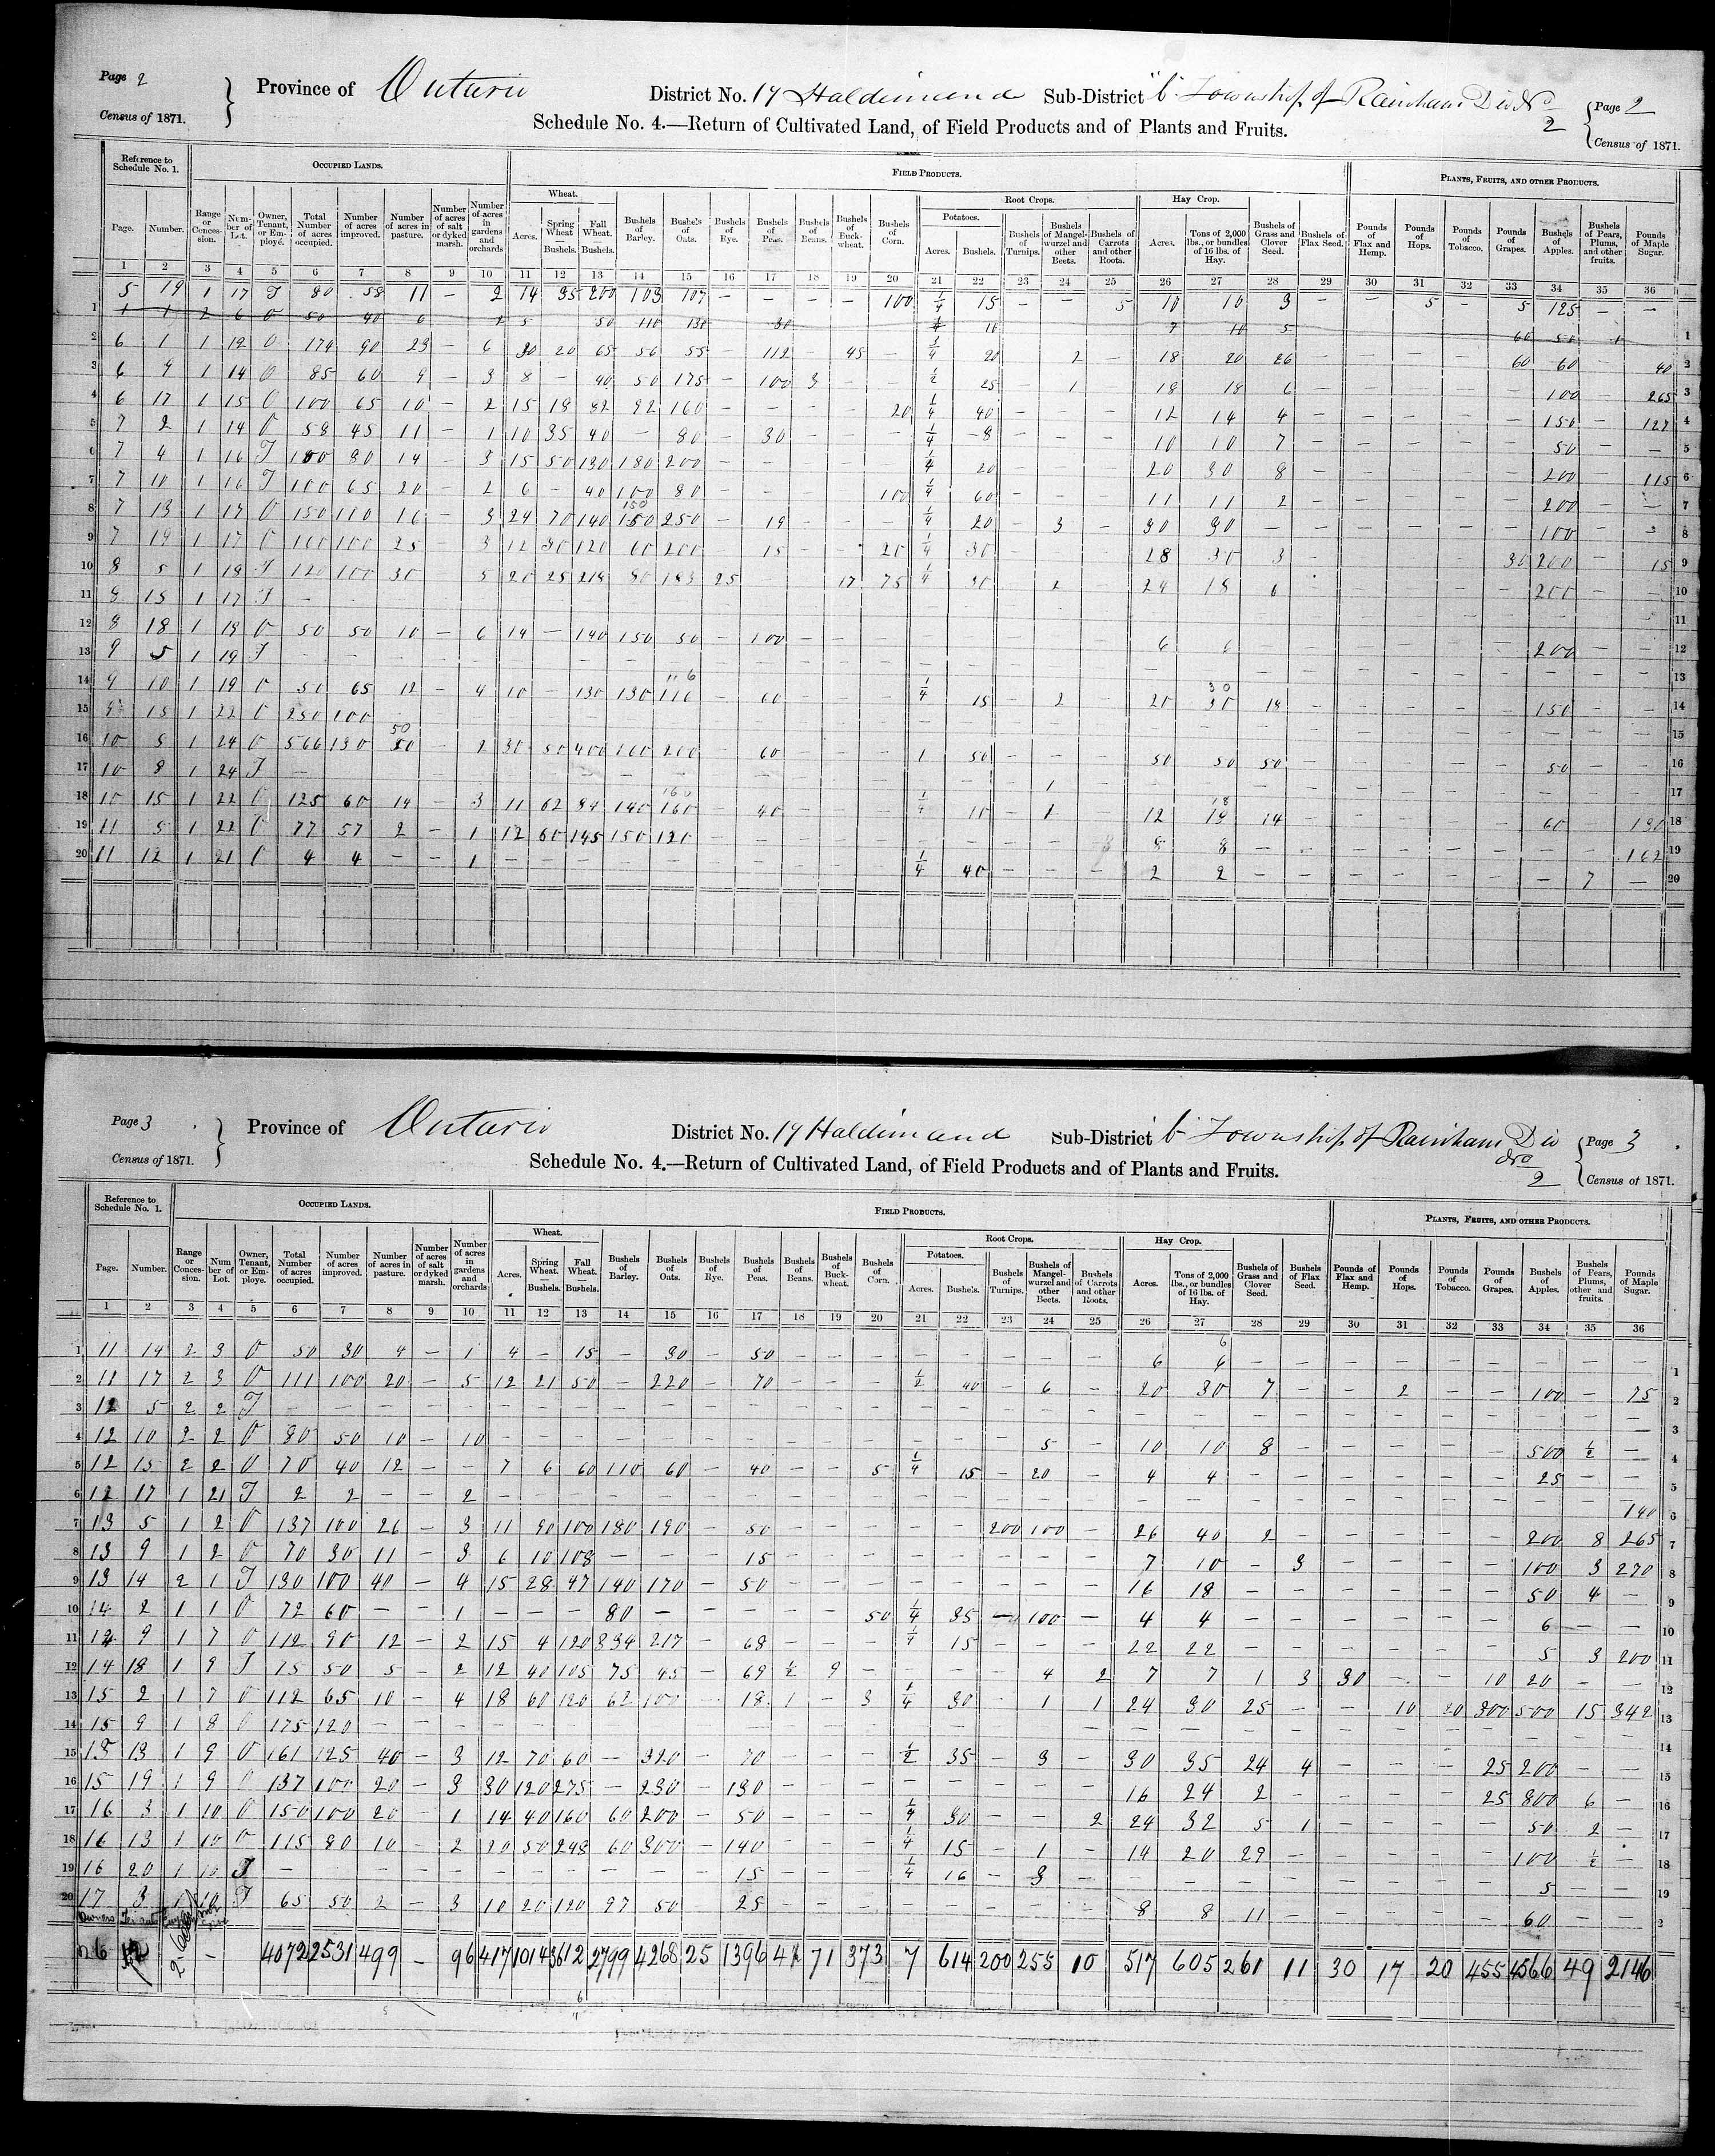 Page 2
Census of 1871.
Province of Ontario
District No. 14 Haldimand Sub-District "b" Township of Rainham Div No 2
Page 2
Census of 1871.
Schedule No. 4.—Return of Cultivated Land, of Field Products and of Plants and Fruits.
Reference to Schedule No. 1. OCCUPIED LANDS. FIELD PRODUCTS. PLANTS, FRUITS, AND OTHER PRODUCTS.
Wheat. Root Crops. Hay Crop.
Potatoes.
Page. Number. Range or Conces-sion. Num-ber of Lot. Owner, Tenant, or Em-ployé. Total Number of acres occupied. Number of acres improved. Number of acres in pasture. Number of acres of salt or dyked marsh. Number of acres in gardens and orchards Acres. Spring Wheat — Bushels. Fall Wheat. — Bushels. Bushels of Barley. Bushels of Oats. Bushels of Rye. Bushels of Peas. Bushels of Beans. Bushels of Buck-wheat. Bushels of Corn. Acres. Bushels. Bushels of Turnips. Bushels of Mangel-wurzel and other Beets. Bushels of Carrots and other Roots. Acres. Tons of 2,000 lbs., or bundles of 16 lbs. of Hay. Bushels of Grass and Clover Seed. Bushels of Flax Seed. Pounds of Flax and Hemp. Pounds of Hops. Pounds of Tobacco. Pounds of Grapes. Bushels of Apples. Bushels of Pears, Plums, and other fruits. Pounds of Maple Sugar.
1 2 3 4 5 6 7 8 9 10 11 12 13 14 15 16 17 18 19 20 21 22 23 24 25 26 27 28 29 30 31 32 33 34 35 36
5 19 1 17 T 80 58 11 — 2 14 35 200 103 107 — — — — 100 1/4 15 — — 5 10 10 3 — — 5 — 5 125 — —
1 1 1 2 6 O 50 40 6 1 5 50 110 130 30 1/4 11 7 10 5 60 50 1 1
2 6 1 1 12 O 174 90 23 — 6 30 20 65 56 55 — 112 — 45 — 3/4 20 2 — 18 20 26 — 60 60 40 2
3 6 9 1 14 O 85 60 9 — 3 8 — 40 50 175 — 100 3 — — 1/2 25 — 1 — 18 18 6 — 100 — 265 3
4 6 17 1 15 O 100 65 10 — 2 15 18 82 92 160 — — — — 20 1/4 40 — — — 12 14 4 — 150 — 127 4
5 7 2 1 14 O 58 45 11 — 1 10 35 40 — 80 — 30 — — — 1/4 8 — — — 10 10 7 — 50 — — 5
6 7 4 1 16 T 100 80 14 — 3 15 50 130 180 200 — — — — — 1/4 20 — — — 20 30 8 — 200 — 115 6
7 7 10 1 16 T 100 65 20 — 2 6 — 40 100 80 — — — — 100 1/4 60 — — — 11 11 2 — 200 — — 7
8 7 13 1 17 O 150 110 16 — 3 24 70 140 150 250 — 19 — — — 1/4 20 — 3 — 30 30 — — 100 — — 8
9 7 19 1 17 O 100 100 25 — 3 12 30 120 60 200 — 15 — — 20 1/4 30 — — — 28 30 3 — 30 200 — 15 9
10 8 5 1 18 T 120 100 30 5 20 25 218 80 183 25 17 75 1/4 30 2 24 18 6 — 200 — — 10
11 8 15 1 17 T — 11
12 8 18 1 19 O 50 50 10 — 6 14 — 140 150 50 — 100 — — — 6 6 200 — — 12
13 9 5 1 19 T — 13
14 9 10 1 19 O 50 65 12 — 4 10 — 130 130 116 — 60 — — — 1/4 15 — 2 — 20 30 18 — 150 — — 14
15 9 15 1 22 O 250 100 15
16 10 5 1 24 O 566 130 50 — 2 30 50 400 100 200 — 60 — — — 1 50 — — — 50 50 50 — 50 — — 16
17 10 8 1 24 T — 1 17
18 10 15 1 22 O 125 60 14 — 3 11 62 84 140 160 — 40 — — — 1/4 10 — 1 — 12 18 14 — 60 130 18
19 11 5 1 22 O 77 57 2 — 1 12 60 145 150 120 — — — — — 8 8 — 162 19
20 11 12 1 21 O 4 4 — — 1 — 1/4 40 — — — 2 2 — 7 — 20
Page 3
Census of 1871.
Province of Ontario
District No. 14 Haldimand Sub-District b Township of Rainham Div No 2
Page 3
Census of 1871.
Schedule No. 4.—Return of Cultivated Land, of Field Products and of Plants and Fruits.
Reference to Schedule No. 1. OCCUPIED LANDS. FIELD PRODUCTS. PLANTS, FRUITS, AND OTHER PRODUCTS.
Wheat. Root Crops. Hay Crop.
Potatoes.
Page. Number. Range or Conces-sion. Num ber of Lot. Owner, Tenant, or Em-ploye. Total Number of acres occupied. Number of acres improved. Number of acres in pasture. Number of acres of salt or dyked marsh. Number of acres in gardens and orchards Acres. Spring Wheat. — Bushels. Fall Wheat. — Bushels. Bushels of Barley. Bushels of Oats. Bushels of Rye. Bushels of Peas. Bushels of Beans. Bushels of Buck-wheat. Bushels of Corn. Acres. Bushels. Bushels of Turnips. Bushels of Mangel-wurzel and other Beets. Bushels of Carrots and other Roots. Acres. Tons of 2,000 lbs., or bundles of 16 lbs. of Hay. Bushels of Grass and Clover Seed. Bushels of Flax Seed. Pounds of Flax and Hemp. Pounds of Hops. Pounds of Tobacco. Pounds of Grapes. Bushels of Apples. Bushels of Pears, Plums, other and fruits. Pounds of Maple Sugar.
1 2 3 4 5 6 7 8 9 10 11 12 13 14 15 16 17 18 19 20 21 22 23 24 25 26 27 28 29 30 31 32 33 34 35 36
1 11 14 2 3 O 50 30 4 — 1 4 — 15 — 30 — 50 — — — 6 6 — 1
2 11 17 2 3 O 111 100 20 — 5 12 21 50 — 220 — 70 — — — 1/2 40 — 6 — 20 30 7 — — 2 — — 100 — 75 2
3 12 5 2 2 T — 3
4 12 10 2 2 O 80 50 10 — 10 — 5 — 10 10 8 — 500 1/2 — 4
5 12 15 2 2 O 70 40 12 — — 7 6 60 110 60 — 40 — — 5 1/4 15 — 20 — 4 4 — 25 — — 5
6 12 17 1 21 T 2 2 — — 2 — 140 6
7 13 5 1 2 O 137 100 26 — 3 11 90 100 180 190 — 50 — — — — — 200 100 — 26 40 2 — 200 8 265 7
8 13 9 1 2 O 70 30 11 — 3 6 10 108 — — — 15 — 7 10 — 3 — 100 3 270 8
9 13 14 2 1 T 130 100 40 — 4 15 28 47 140 170 — 50 — 16 18 — 50 4 — 9
10 14 2 1 1 O 72 60 — — 1 — — — 80 — — — — — 50 1/4 85 — 100 — 4 4 — 6 — — 10
11 14 9 1 7 O 112 90 12 — 2 15 4 120 834 217 — 68 — — — 1/4 15 — — — 22 22 — 5 3 200 11
12 14 18 1 9 T 75 50 5 — 2 12 40 105 75 45 — 69 1/2 9 — — — — 4 2 7 7 1 3 30 — — 10 20 — — 12
13 15 2 1 7 O 112 65 10 — 4 18 60 120 62 100 — 18 1 — 3 1/4 30 — 1 1 24 30 25 — — 10 20 300 500 15 342 13
14 15 9 1 8 O 175 120 — 14
15 15 13 1 9 O 161 125 40 — 3 12 70 60 — 320 — 70 — — — 1/2 35 — 3 — 30 35 24 4 — — — 25 200 — — 15
16 15 19 1 9 O 137 100 20 — 3 30 120 275 — 230 — 130 — 16 24 2 — 25 800 6 — 16
17 16 3 1 10 O 150 100 20 — 1 14 40 160 60 200 — 50 — — — 1/4 30 — — 2 24 32 5 1 — 50 2 — 17
18 16 13 1 10 O 115 80 10 — 2 20 50 248 60 300 — 140 — — — 1/4 15 — 1 — 14 20 29 — 100 1/2 — 18
19 16 20 1 10 T — 15 — — — 1/4 16 — 3 — 5 — 19
20 17 3 1 10 T 65 50 2 — 3 10 20 120 97 50 — 25 — 8 8 11 — 60 — — 2
Owners Tenants
26 12 — 4072 2531 499 — 96 417 1014 3612 2799 4268 25 1396 4½ 71 373 7 614 200 255 10 517 605 261 11 30 17 20 455 4566 49 2146